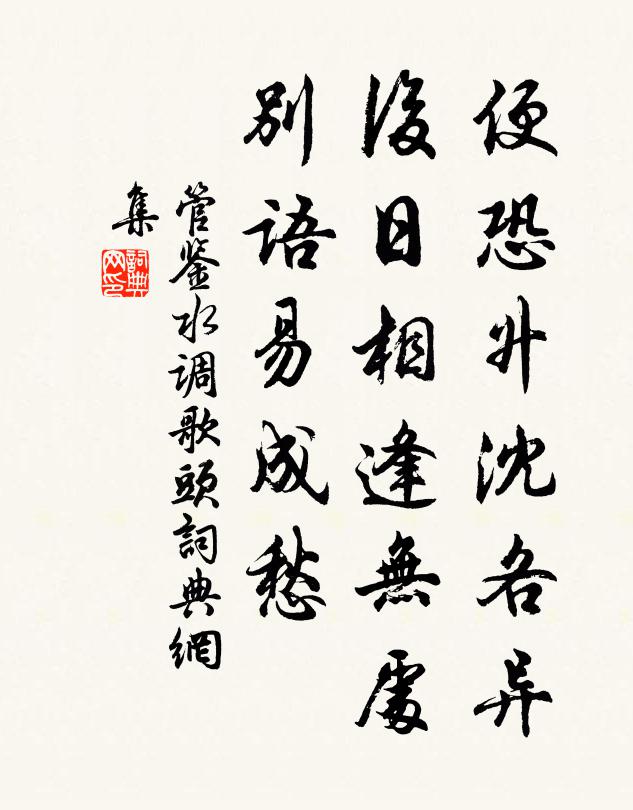 便恐升沈各异
後日相逢無處
别語易成愁
管鉴水调歌頭詞典網
集
詞典网印